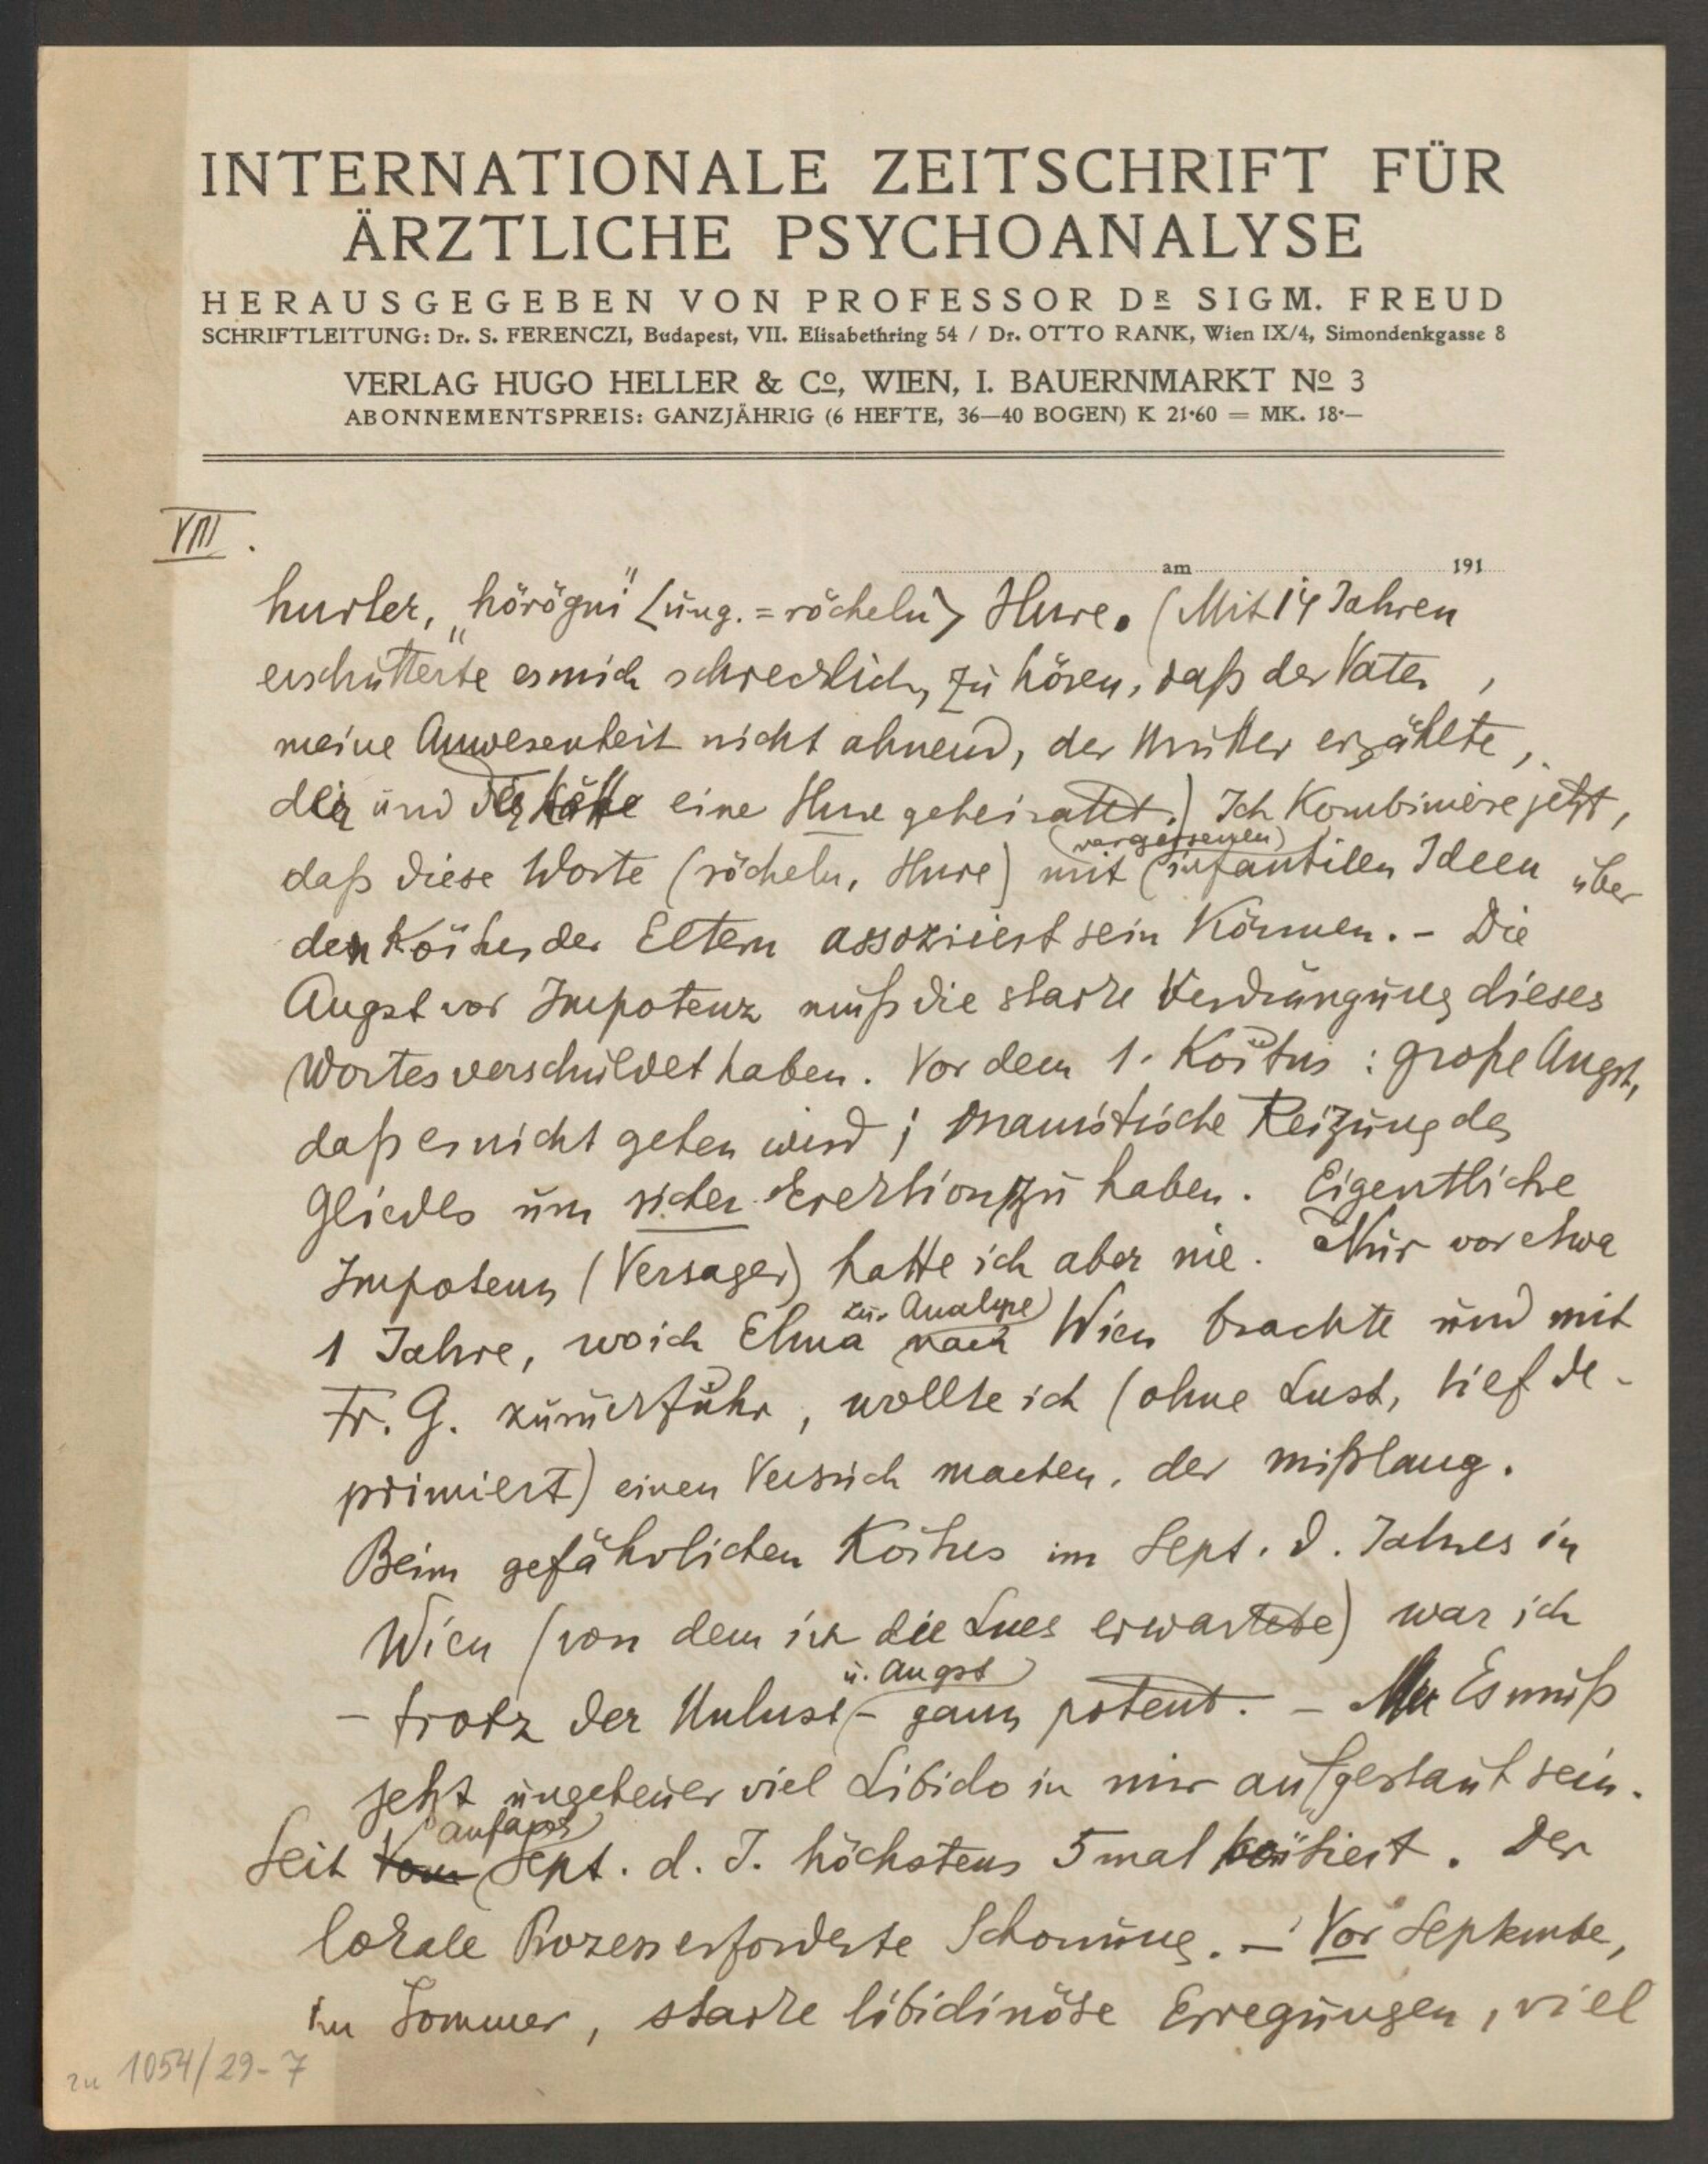 INTERNATIONALE ZEITSCHRIFT FÜR
ÄRZTLICHE PSYCHOANALYSE
HERAUSGEGEBEN VON PROFESSOR DR SIGM. FREUD
SCHRIFTLEITUNG: Dr. S. FERENCZI, Budapest, VII. Elisabethring 54 / Dr. OTTO RANK, Wien IX/4, Simondenkgasse 8
VERLAG HUGO HELLER & Co, WIEN, I. BAUERNMARKT No 3
ABONNEMENTSPREIS: GANZJÄHRIG (6 HEFTE, 36—40 BOGEN) K 21·60 = MK. 18·—
am 191
VIII.
hurler, „hörögni" <ung. = röcheln> Hure. (Mit 14 Jahren
erschütterte es mich schrecklich, zu hören, daß der Vater,
meine Anwesenheit nicht ahnend, der Mutter erzählte,
der und der hätte eine Hure geheiratet.) Ich kombiniere jetzt,
daß diese Worte (röcheln, Hure) mit (vergessenen) infantilen Ideen über
den Koitus der Eltern assoziiert sein können. - Die
Angst vor Impotenz muß die starke Verdrängung dieses
Wortes verschuldet haben. Vor dem 1. Koitus: große Angst,
daß es nicht gehen wird; onanistische Reizung des
Gliedes um sicher Erektion zu haben. Eigentliche
Impotenz (Versager) hatte ich aber nie. Nur vor etwa
1 Jahre, wo ich Elma zur Analyse nach Wien brachte und mit
Fr. G. zurückfuhr, wollte ich (ohne Lust, tief de-
primiert) einen Versuch machen, der mißlang.
Beim gefährlichen Koitus im Sept. d. Jahres in
Wien (von dem ich die Lues erwartete) war ich
- trotz der Unlust u. Angst - ganz potent. - Es muß
jetzt ungeheuer viel Libido in mir aufgestaut sein.
Seit Vom anfangs Sept. d. J. höchstens 5 mal koitiert. Der
lokale Prozess erforderte Schonung. - Vor September,
im Sommer, starke libidinöse Erregungen, viel
zu 1054/29-7